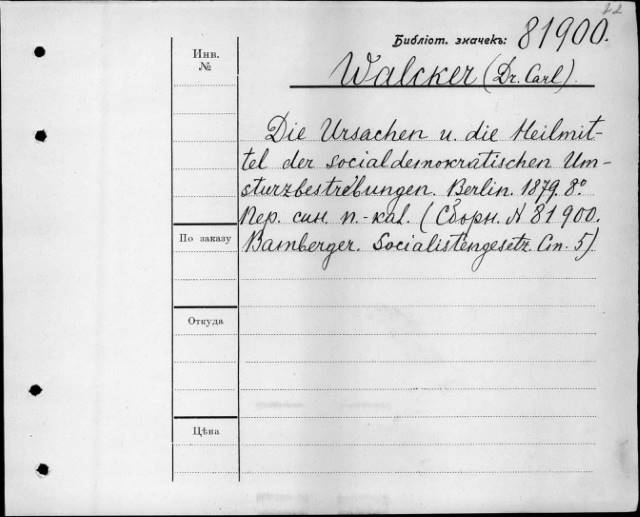 22
Библіот. значекъ: 81900.
Инв.
№
Walcker (Dr. Carl).
Die Ursachen u. die Heilmit-
tel der socialdemokratischen Um-
sturzbestrebungen. Berlin. 1879. 8º
Пер. син. п.-кал. (Сборн. № 81900.
По заказу
Bamberger. Socialistengesetz. Ст. 5).
Откуда
Цѣна